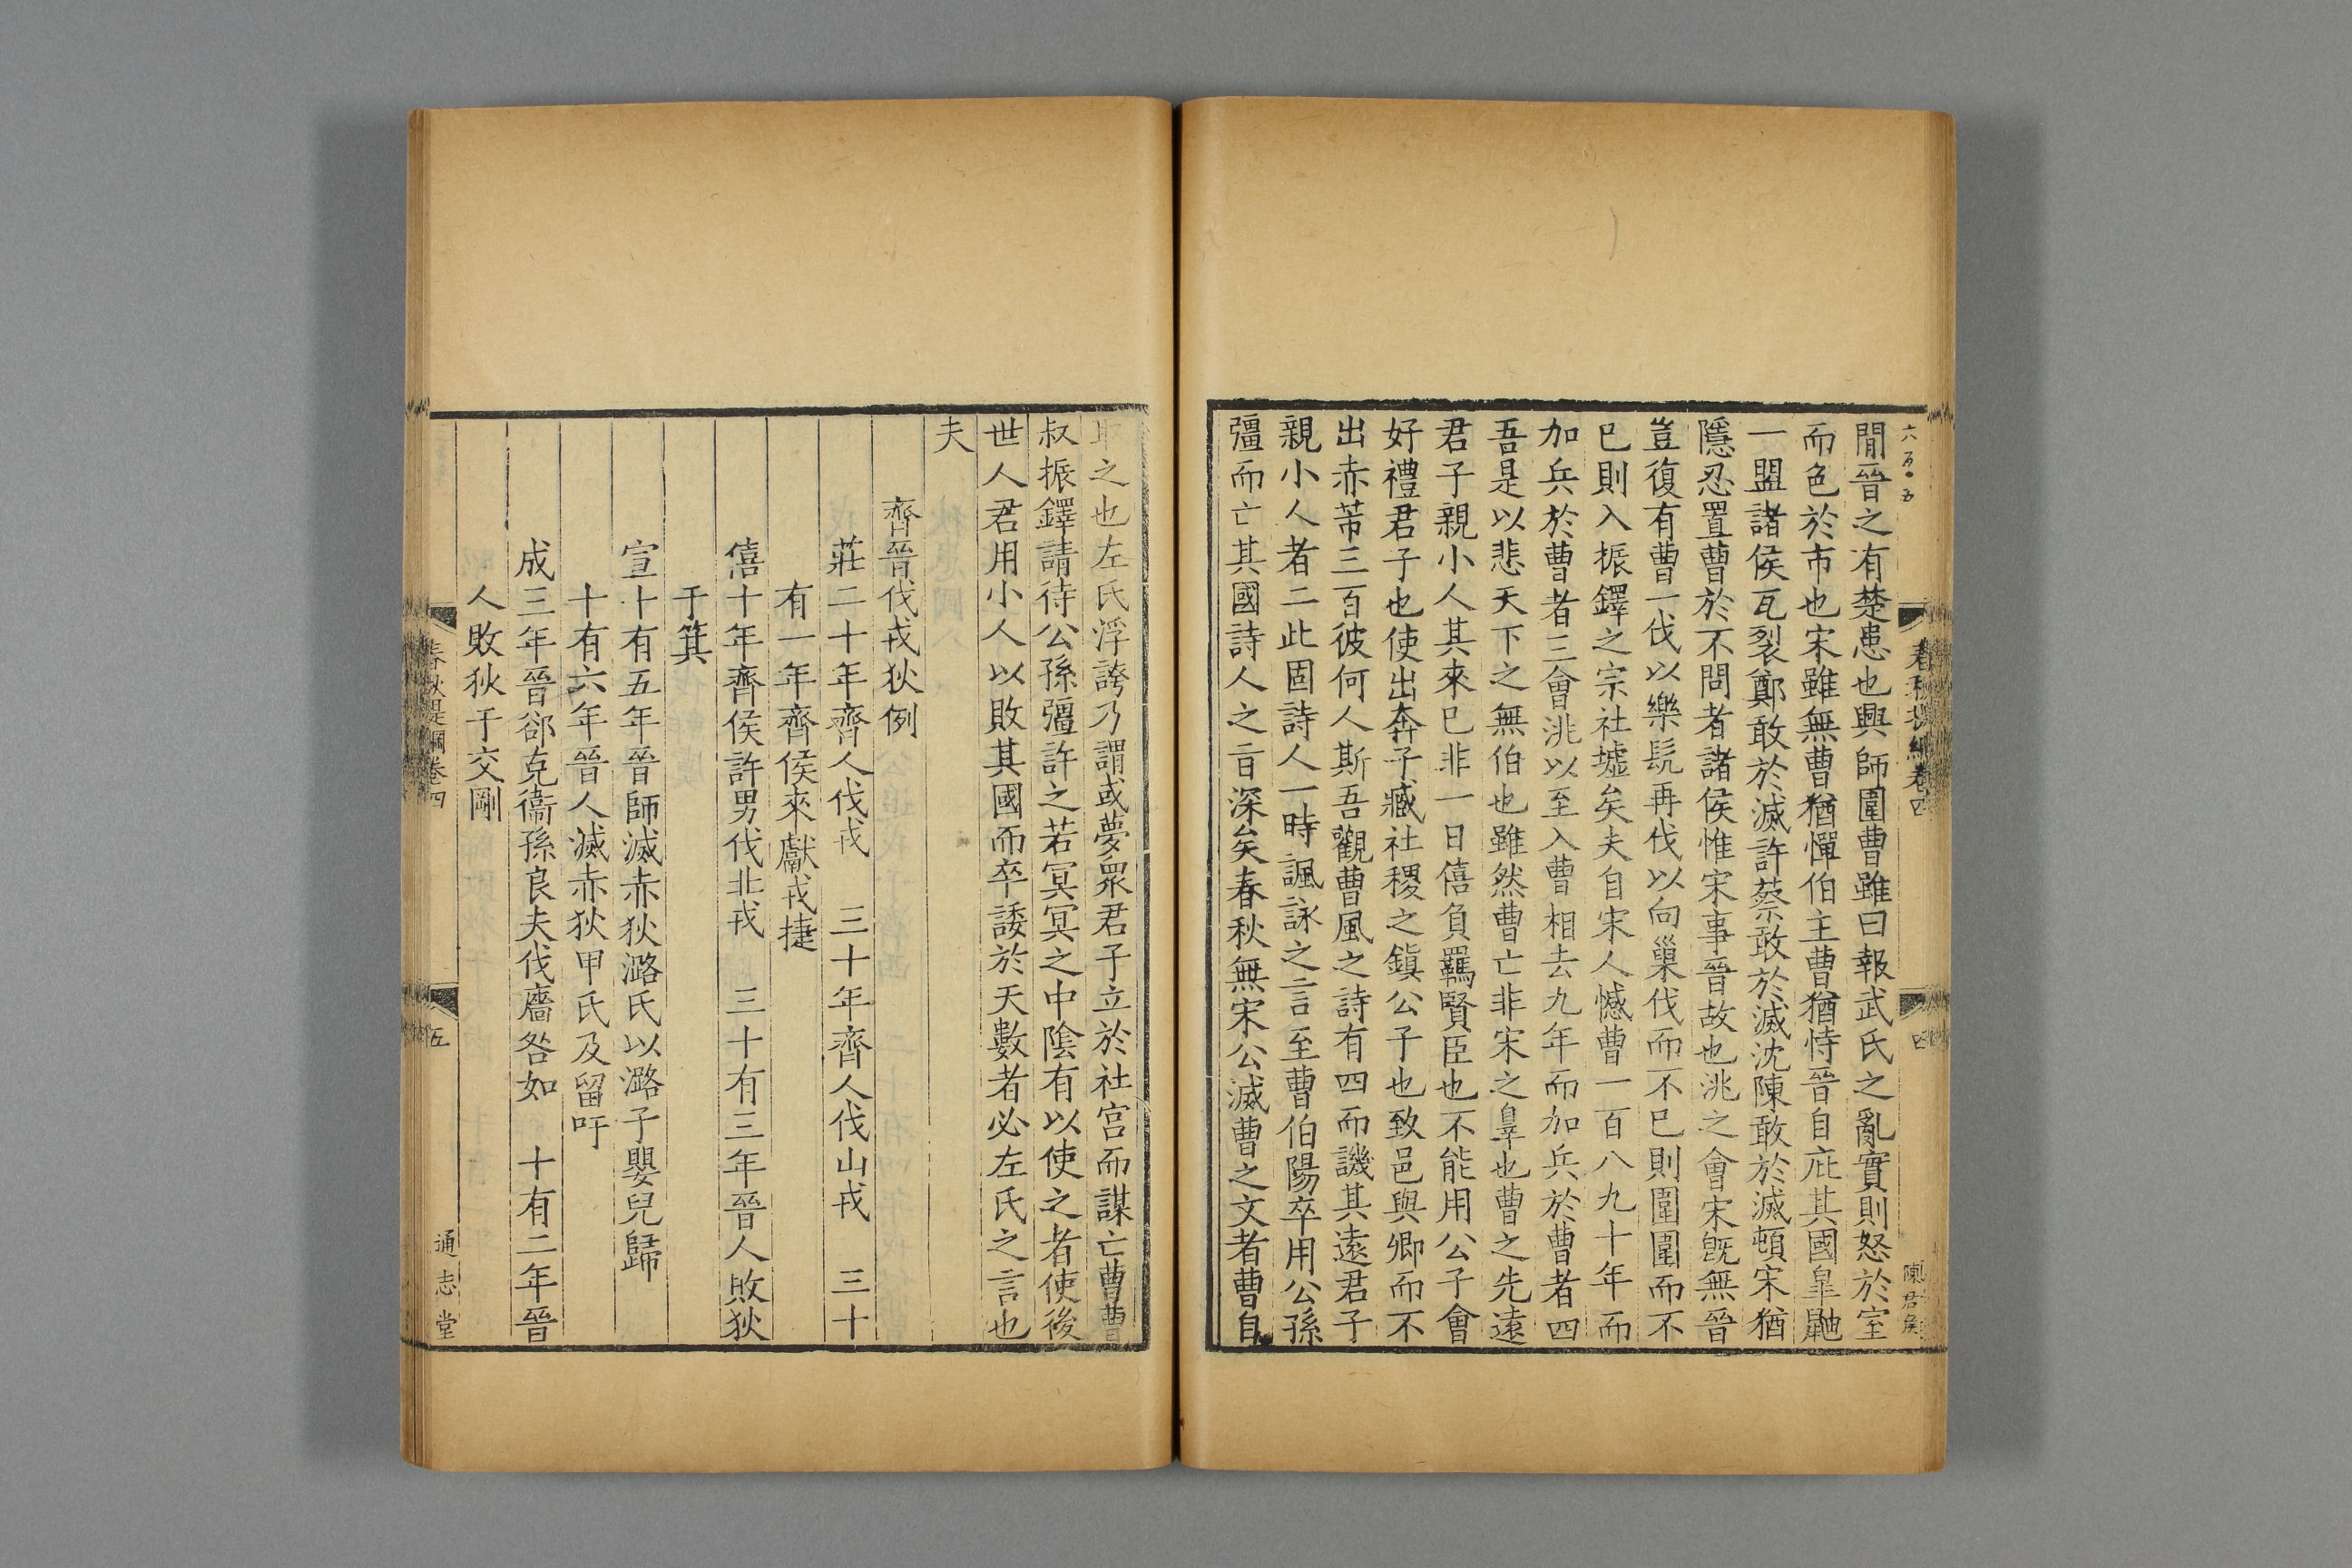 六百·五
春秋提綱卷四
四
陳君侯
閒晉之有楚患也興師圍曹雖曰報武氏之亂實則怒於室
而色於市也宋雖無曹猶憚伯主曹猶恃晉自庇其國皐鼬
一盟諸侯瓦裂鄭敢於滅許蔡敢於滅沈陳敢於滅頓宋猶
隱忍置曹於不問者諸侯惟宋事晉故也洮之會宋旣無晉
豈復有曹一伐以樂髡再伐以向巢伐而不已則圍圍而不
已則入振鐸之宗社墟矣夫自宋人憾曹一百八九十年而
加兵於曹者三會洮以至入曹相去九年而加兵於曹者四
吾是以悲天下之無伯也雖然曹亡非宋之辠也曹之先遠
君子親小人其來已非一日僖負羈賢臣也不能用公子會
好禮君子也使出奔子臧社稷之鎮公子也致邑與卿而不
出赤芾三百彼何人斯吾觀曹風之詩有四而譏其遠君子
親小人者二此固詩人一時諷詠之言至曹伯陽卒用公孫
彊而亡其國詩人之言深矣春秋無宋公滅曹之文者曹自
取之也左氏浮誇乃謂或夢眾君子立於社宮而謀亡曹曹
叔振鐸請待公孫彊許之若冥冥之中陰有以使之者使後
世人君用小人以敗其國而卒諉於天數者必左氏之言也
夫
齊晉伐戎狄例
莊二十年齊人伐戎　三十年齊人伐山戎　三十
有一年齊侯來獻戎捷
僖十年齊侯許男伐北戎　三十有三年晉人敗狄
于箕
宣十有五年晉師滅赤狄潞氏以潞子嬰兒歸
十有六年晉人滅赤狄甲氏及留吁
成三年晉郤克衞孫良夫伐廧咎如　十有二年晉
人敗狄于交剛
春秋提綱卷四
五
通志堂